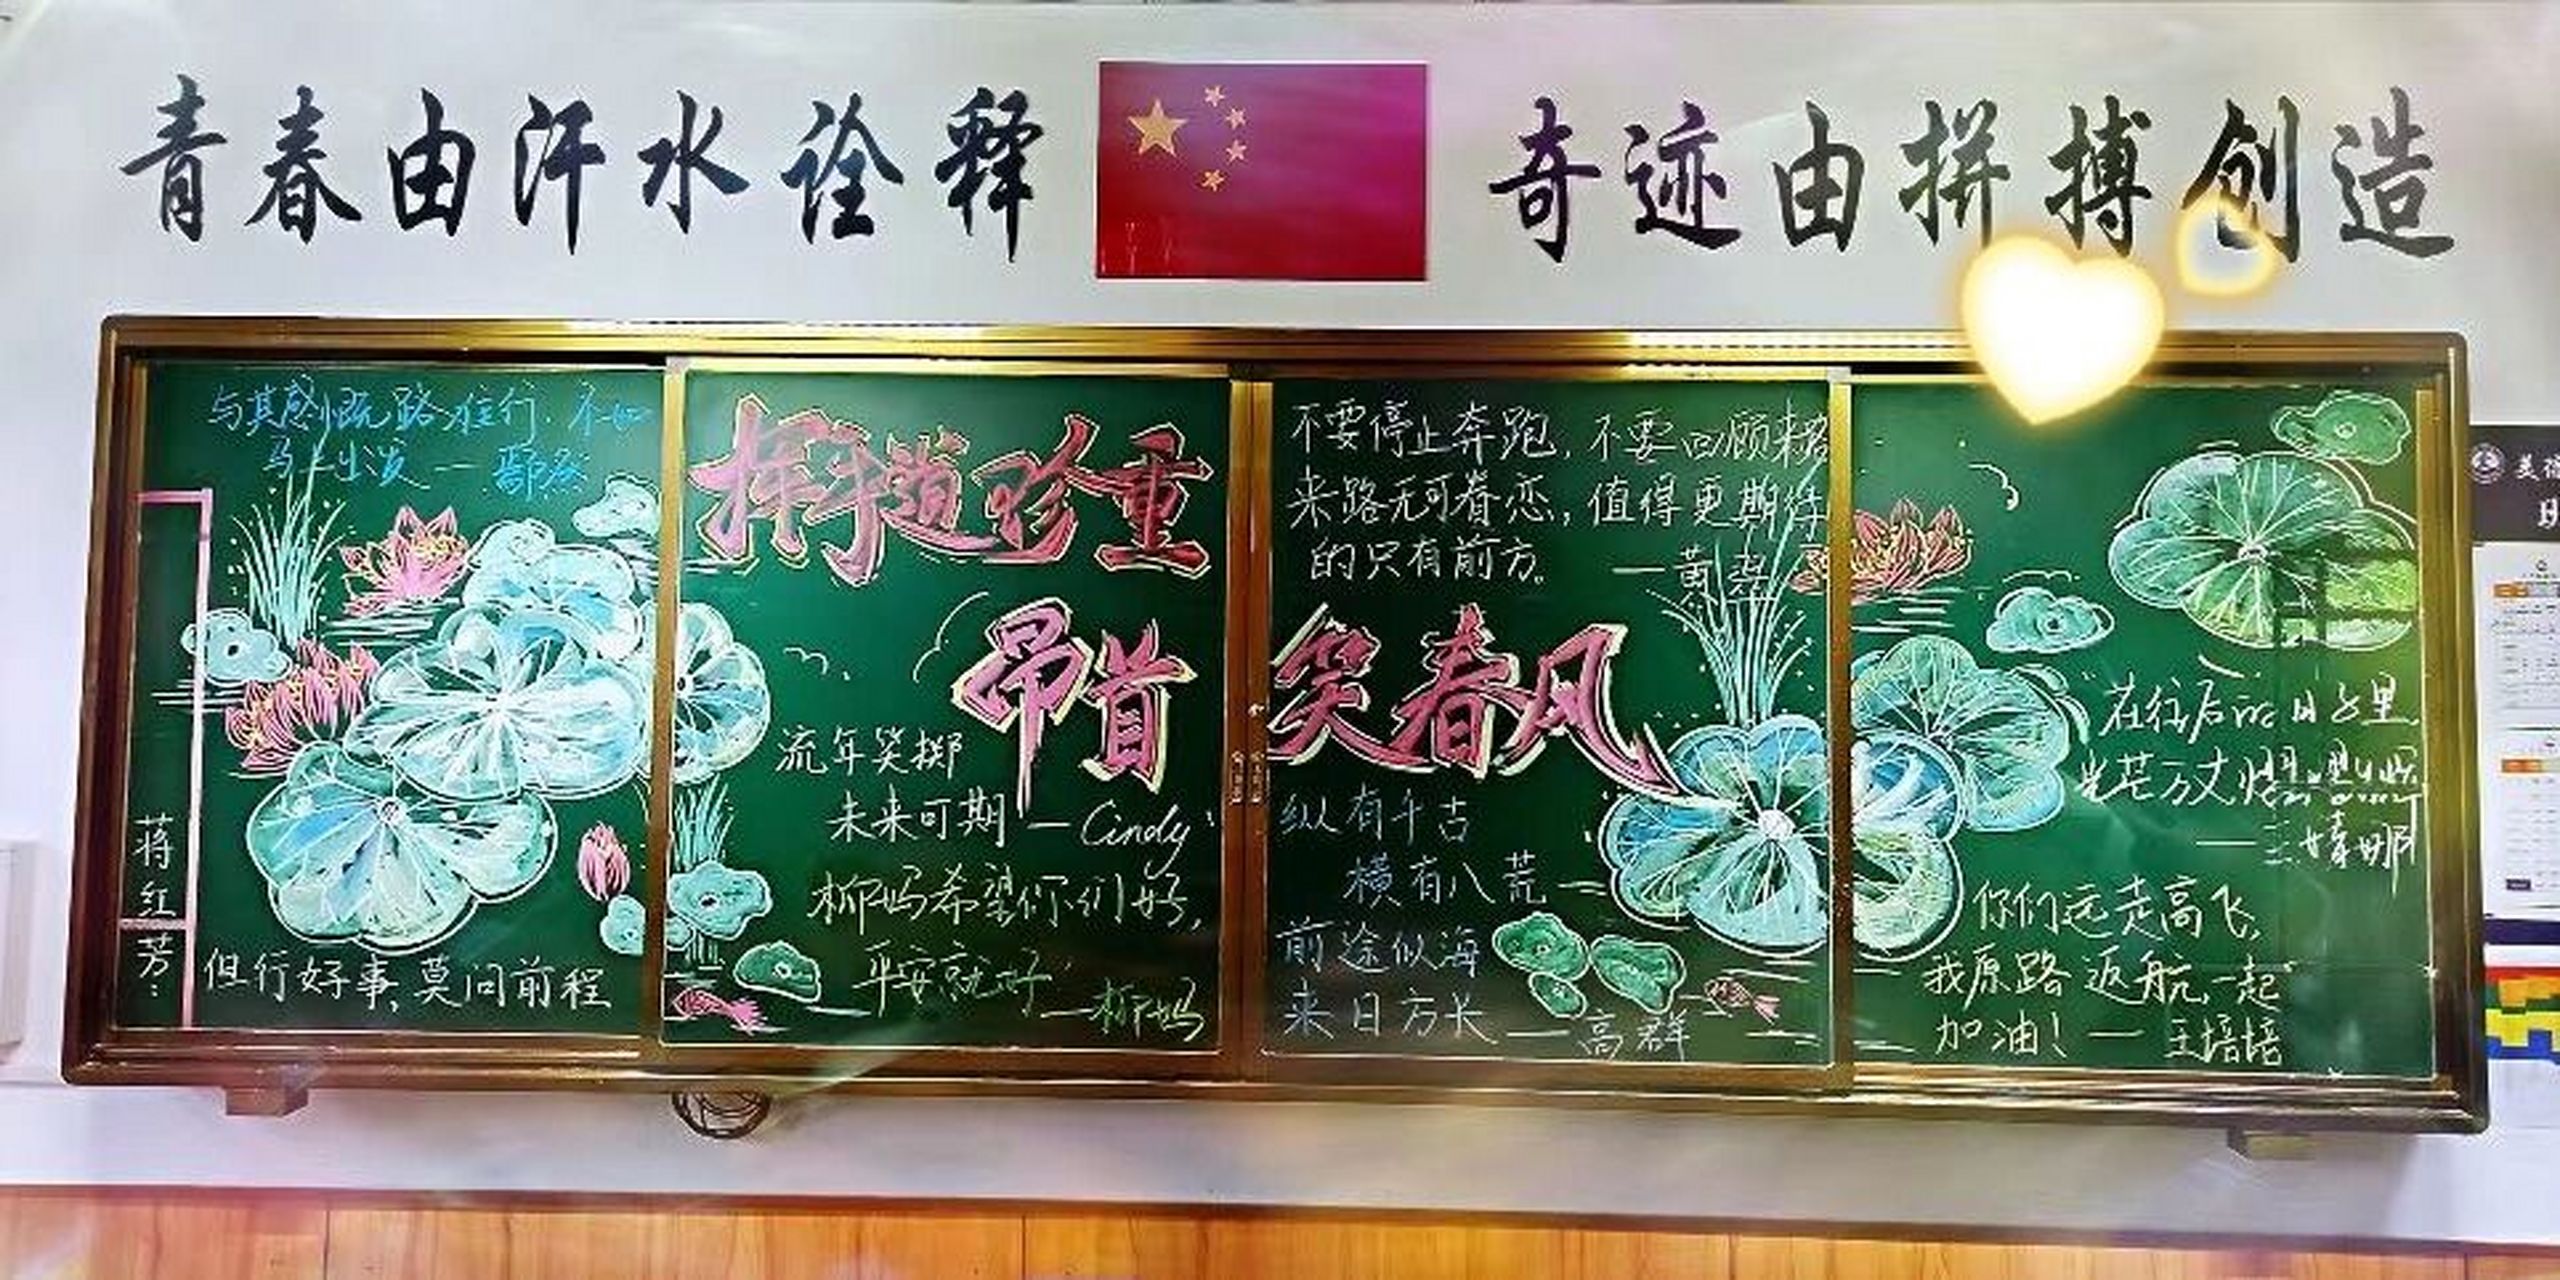 青春由汗水诠释
奇迹由拼搏创造
与其感慨路难行，不如
马上出发 —
蒋红芳：
但行好事，莫问前程
挥手道珍重
昂首
笑春风
流年笑掷
未来可期 — Cindy
柳妈希望你们好，
平安就好
—柳妈
不要停止奔跑，不要回顾来路
来路无可眷恋，值得更期待
的只有前方。
—黄
纵有千古
横有八荒
前途似海
来日方长 — 高群
在往后的日子里
光芒万丈
你们远走高飞，
我原路返航，一起
加油！ — 王培培